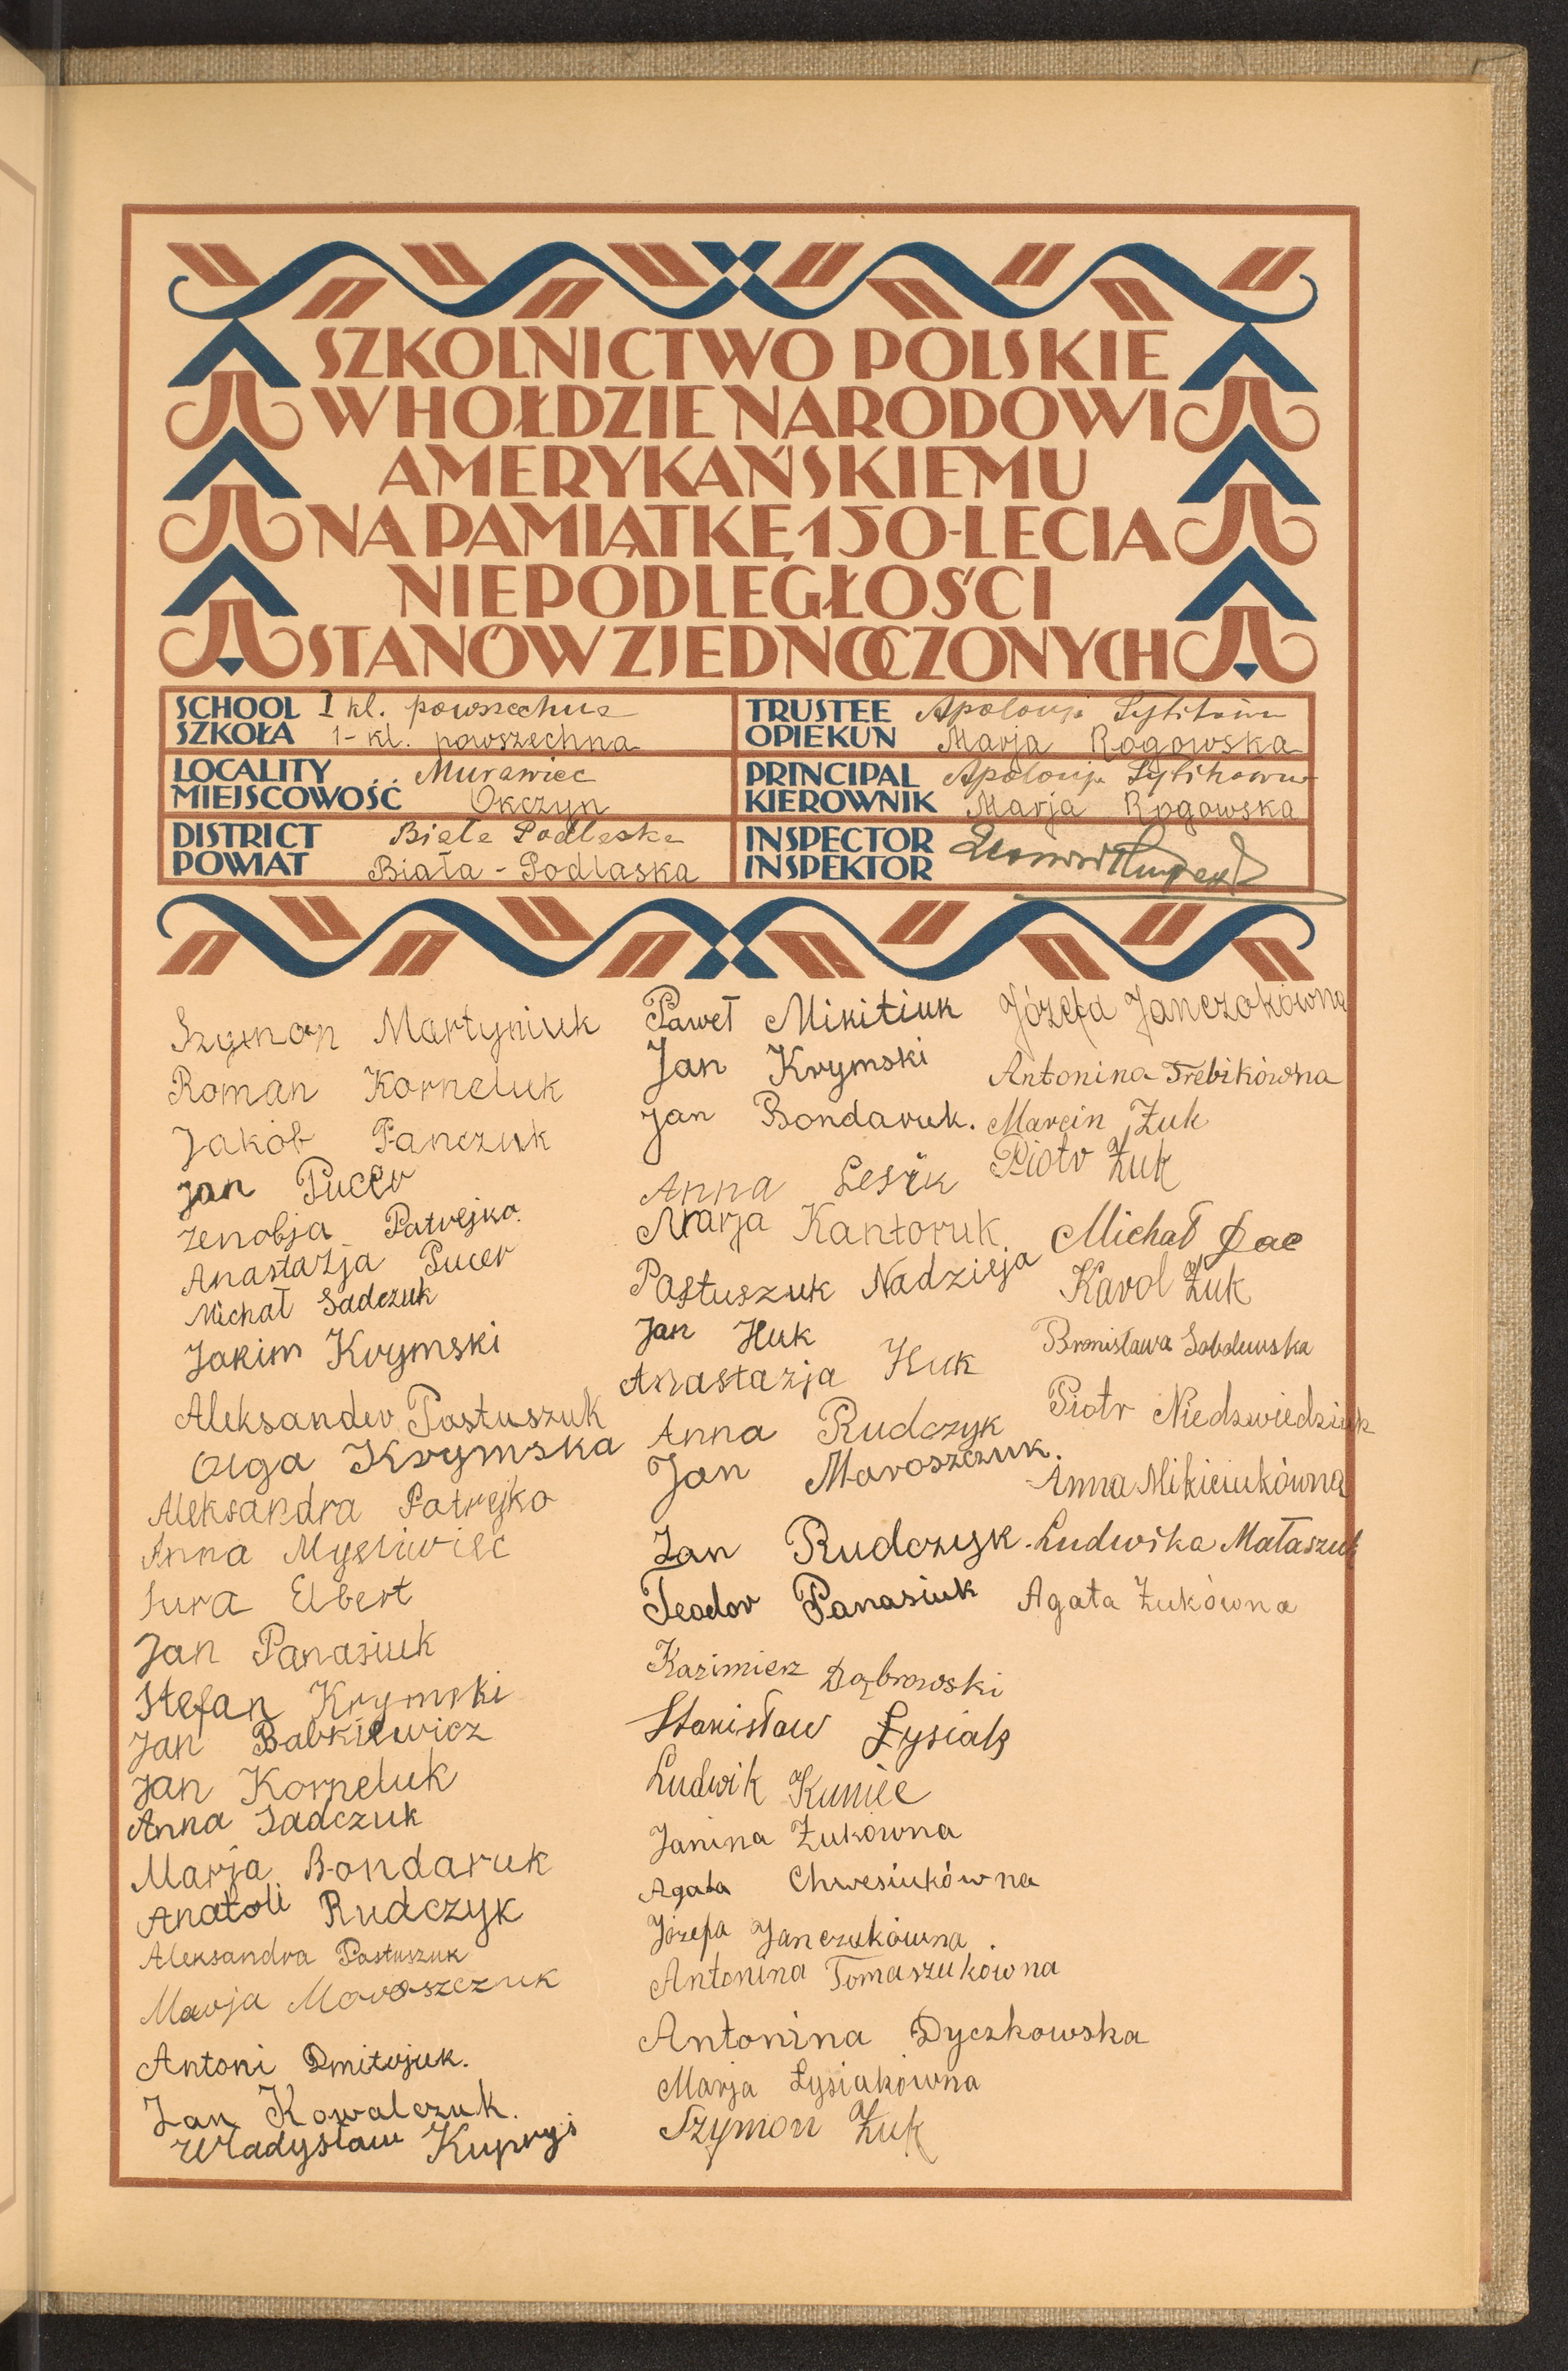 SZKOLNICTWO POLSKIE
W HOŁDZIE NARODOWI
AMERYKAŃSKIEMU
NA PAMIĄTKĘ 150-LECIA
NIEPODLEGŁOŚCI
STANÓW ZJEDNOCZONYCH
SCHOOL I kl. powszechna
SZKOŁA 1-kl. powszechna
LOCALITY Murawiec
MIEJSCOWOŚĆ Okczyn
DISTRICT Biała Podlaska
POWIAT Biała-Podlaska
TRUSTEE Apolonja
OPIEKUN Marja Rogowska
PRINCIPAL Apolonja
KIEROWNIK Marja Rogowska
INSPECTOR
INSPEKTOR
Szymon Martyniuk
Roman Korneluk
Jakób Panczuk
Jan Pucer
Zenobja Patrejko.
Anastazja Pucer
Michał Sadczuk
Jakim Krymski
Aleksander Pastuszuk
Olga Krymska
Aleksandra Patrejko
Anna Mysliwiec
Sura Elbert
Jan Panasiuk
Stefan Krymski
Jan Babkiewicz
Jan Korneluk
Anna Sadczuk
Marja Bondaruk
Anatoli Rudczyk
Aleksandra Pastuszuk
Marja Maroszczuk
Antoni Dmitrjuk.
Jan Kowalczuk.
Władysław Kupryś
Paweł Mikitiuk
Jan Krymski
Jan Bondaruk.
Anna
Marja Kantoruk
Pastuszuk Nadzieja
Jan Huk
Anastazja Huk
Anna Rudczyk
Jan Maroszczuk.
Jan Rudczyk.
Teodor Panasiuk
Kazimierz Dąbrowski
Stanisław Łysiak
Ludwik Kuniec
Janina Żukówna
Agata Chwesiukówna
Józefa Janczukówna
Antonina Tomaszukówna
Antonina Dyczkowska
Marja Łysiakówna
Szymon Żuk
Józefa Janczokówna
Antonina Trebikówna
Marcin Żuk
Piotr Żuk
Michał
Karol Żuk
Bronisława Sobolewska
Piotr Niedzwiedziuk
Anna Mikiciukówna
Ludwika Mataszuk
Agata Żukówna